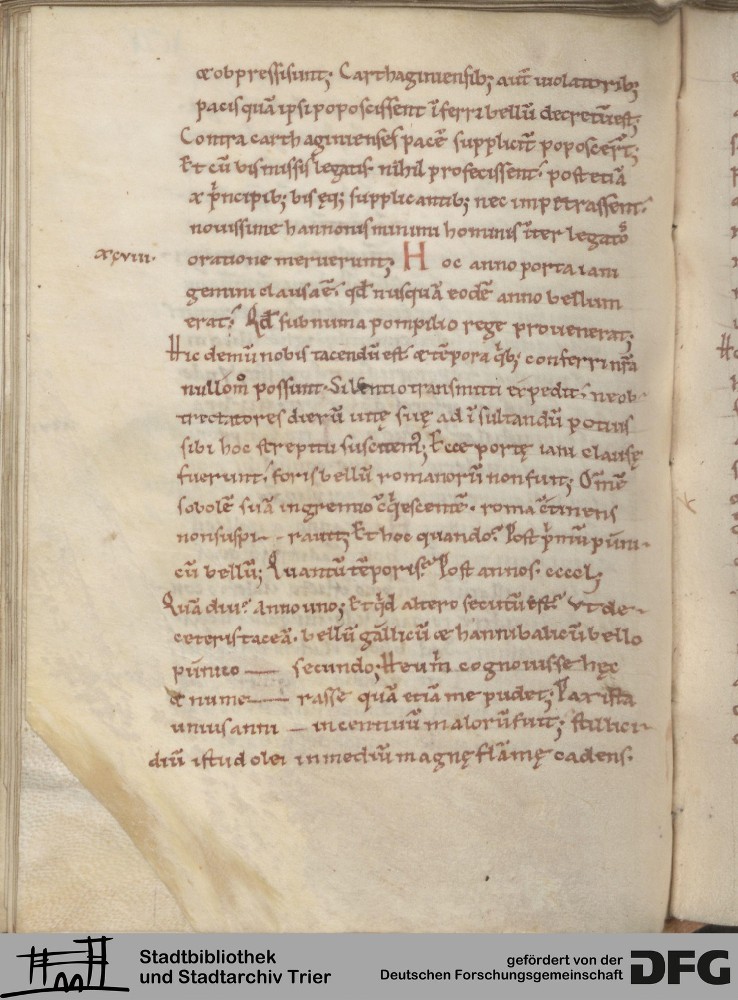 & obpressi sunt; Carthaginiensib; aut̄ uiolatorib;
pacis quā ipsi poposcissent īferri bellū decretū est;
Contra carthaginienses pacē supplicit̄ poposcer̄t;
Et cū bis missis legatis nihil profecissent· post etiā
x p̄ncipib; bis eq; supplicantib; nec impetrassent·
nouissime hannonis minimi hominis īter legatos
xcviii· oratione meruerunt; Hoc anno porta iani
gemini clausa ē· qd̄ nusquā eodē anno bellum
erat· Qd̄ sub numa pompilio rege prouenerat;
Hic demū nobis tacendū est· & tēpora q̇b; conferri n̄ra
nullom̊ possunt· Silentio transmitti expedit· ne ob-
trectatores dierū uitę suę ad īsultandū potius
sibi hoc strepitu suscitem9; Ecce portę iani clausę
fuerunt· foris bellū romanorū non fuit; Om̄ē
sobolē suā in gremio cq̄escentē· roma ētinens
non suspi- rauit; Et hoc quando· Post p̄mū puni-
cū bellū; Quantū tēporis· Post annos· ccccl;
Quā diu· Anno uno; Et qd̄ altero secutū est· Vt de
ceteris taceā· bellū gallicū & hannibalicū bello
punico — secundo; Heu m̄ cognouisse hęc
& nume— rasse quā etiā me pudet; Pax ista
unius anni — incentiuū malorū fuit; stillici-
diū istud olei in mediū magnę flāmę cadens·
Stadtbibliothek
und Stadtarchiv Trier
gefördert von der
Deutschen Forschungsgemeinschaft
DFG